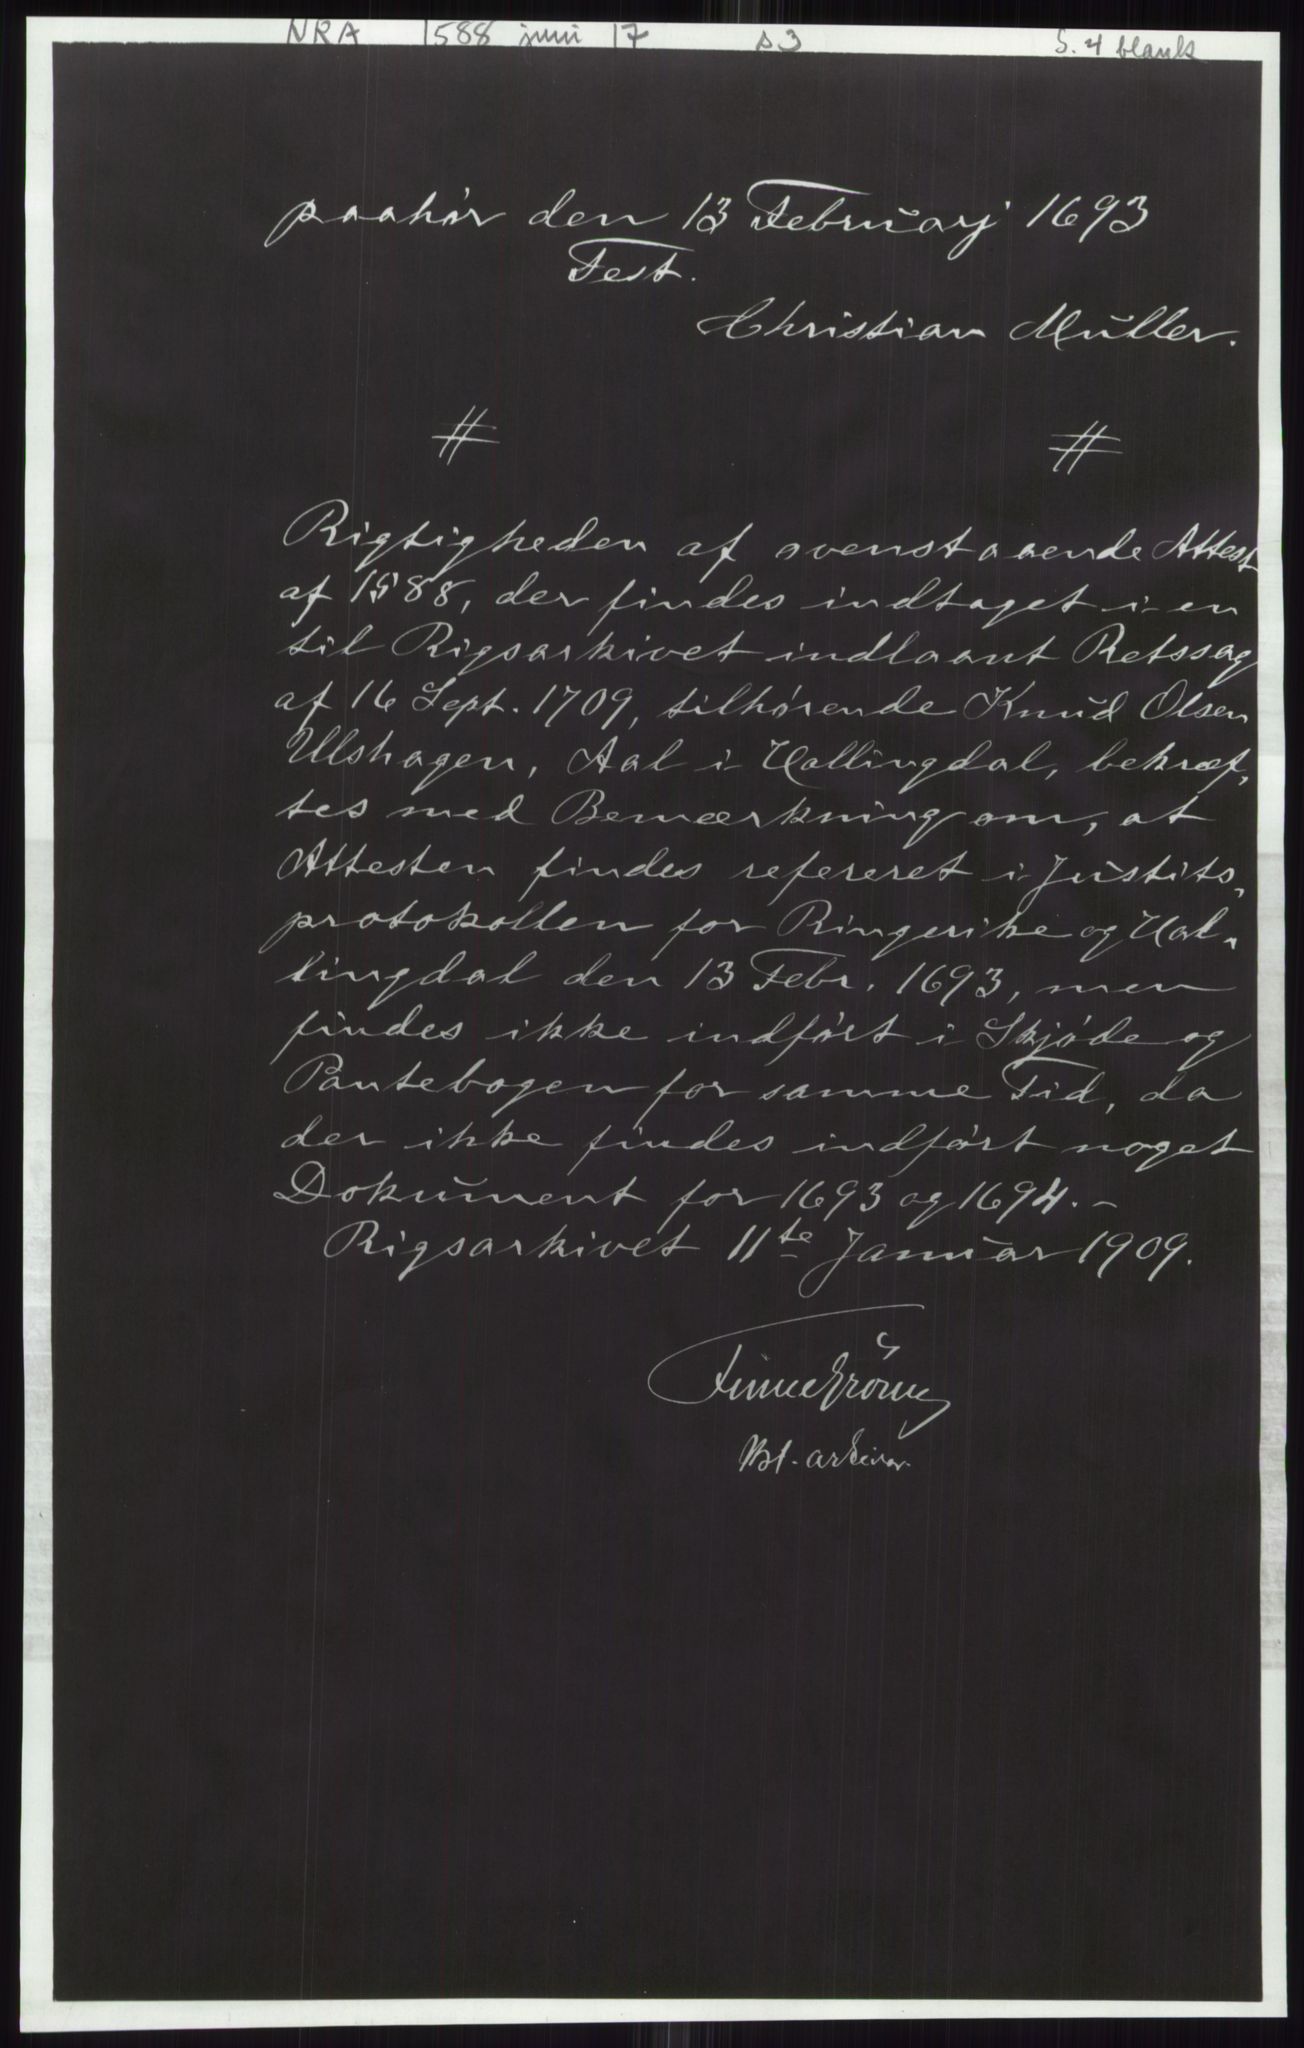 NRA 1588 juni 17 s3 S. 4 blank
paahör den 13 Februarj 1693
Test.
Christian Müller.
# #
Rigtigheden af ovenstaaende Attest
af 1588, der findes indtaget i en
til Rigsarkivet indlaant Retssag
af 16 Sept. 1709, tilhörende Knud Olsen
Ulshagen, Aal i Hallingdal, bekræf-
tes med Bemærkning om, at
Attesten findes refereret i Justits-
protokollen for Ringerike og Hal-
lingdal den 13 Febr. 1693, men
findes ikke indfört i Skjöde og
Pantebogen for samme Tid, da
der ikke findes indfört noget
Dokument for 1693 og 1694.-
Rigsarkivet 11te Januar 1909.
Finne Grönn
Kst. arkivar.